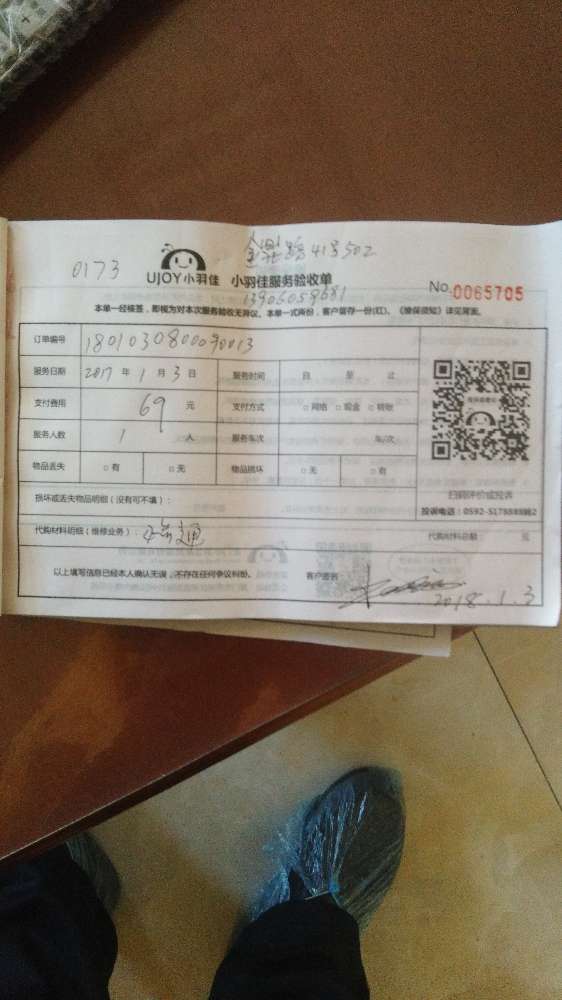 41号502
0173
UJOY小羽佳 小羽佳服务验收单
No.0065705
13906059681
本单一经核签,即视为对本次服务验收无异议。本单一式两份,客户留存一份(红)。《维保须知》详见尾面。
订单编号 1801030800090013
服务日期 2017 年 1 月 3 日 服务时间 自 至 止
支付费用 69 元 支付方式 □网络 □现金 □转账
服务人数 1 人 服务车次 车/次
物品丢失 □有 □无 物品损坏 □无 □有
扫码评价或投诉
损坏或丢失物品明细(没有可不填):
投诉电话:0592-5178888转2
代购材料明细(维修业务): 通 代购材料总额: 元
以上填写信息已经本人确认无误,不存在任何争议纠纷。 客户签名:
2018.1.3